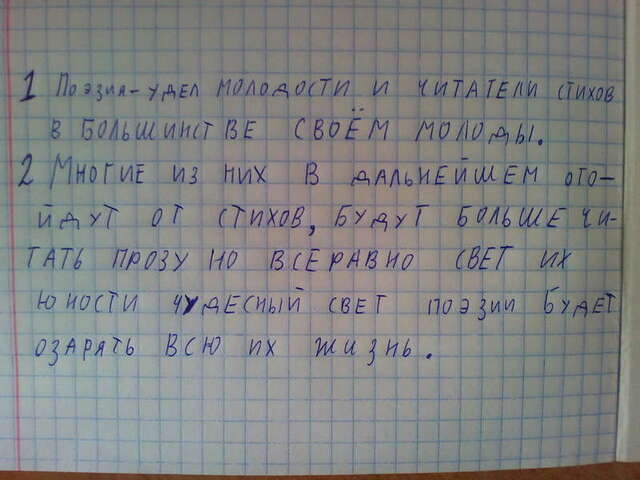 1 Поэзия-удел молодости и читатели стихов
в большинстве своём молоды.
2 Многие из них в дальнейшем ото-
йдут от стихов, будут больше чи-
тать прозу но всеравно свет их
юности чудесный свет поэзии будет
озарять всю их жизнь.